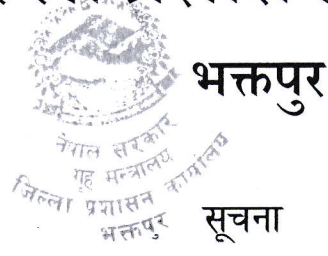 भक्तपुर
नेपाल सरकार
गृह मन्त्रालय
जिल्ला प्रशासन कार्यालय
भक्तपुर
सूचना